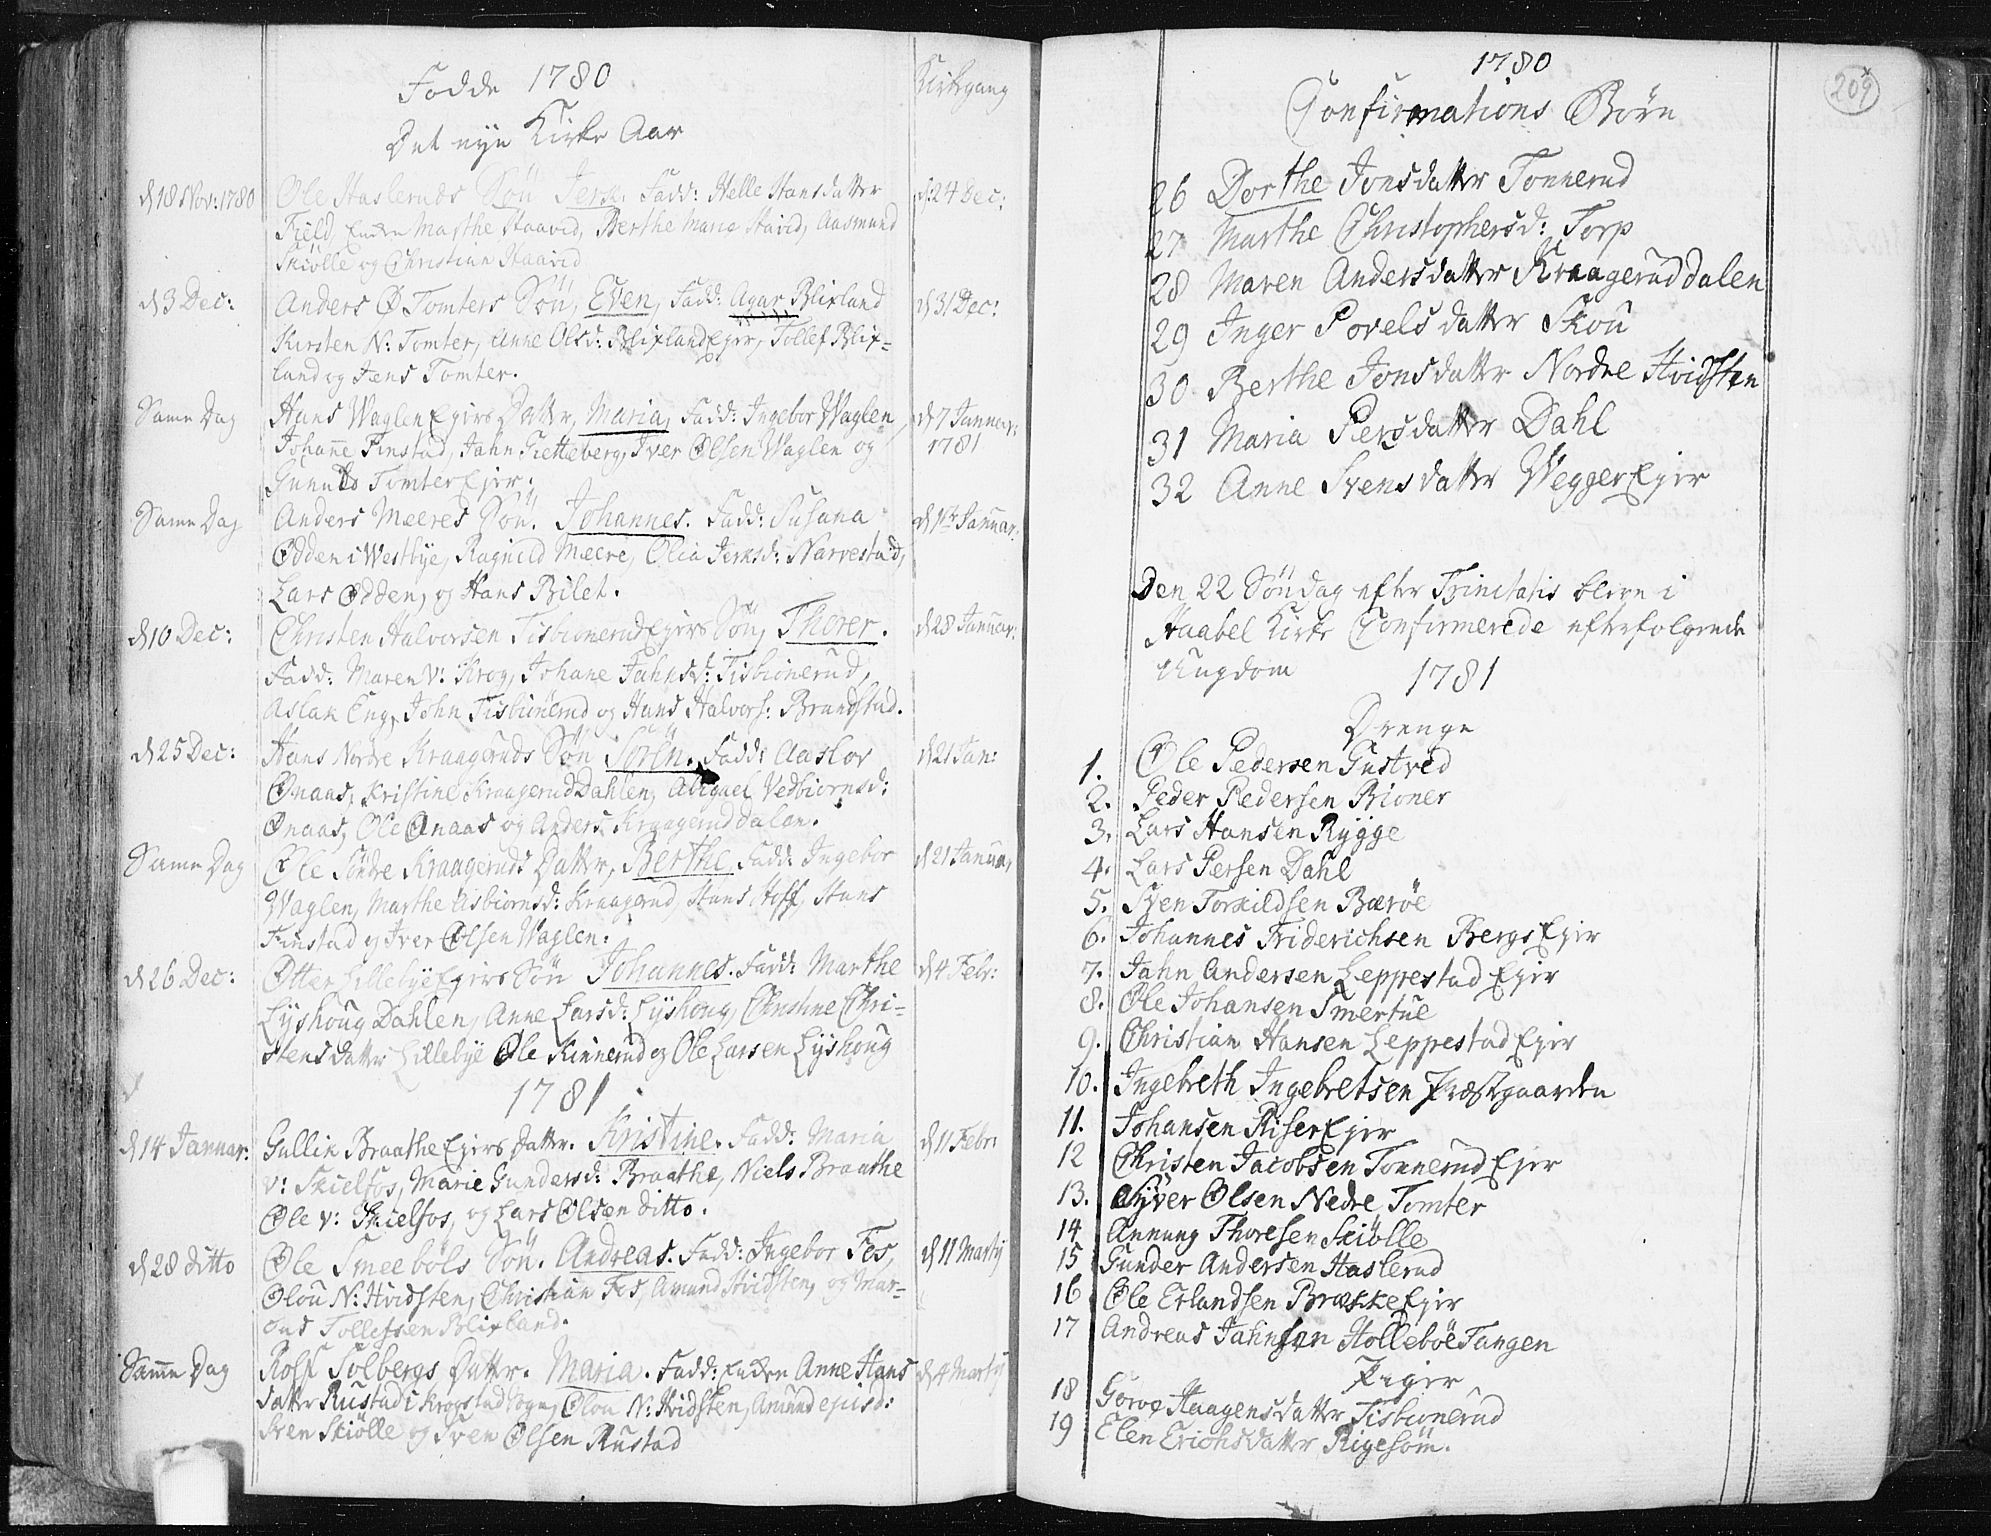 Fødde 1780
Kirkegang
Det nye Kirke Aar
d 18 Nov: 1780
Ole Haslerudes Søn Jens. Fadd: Helle Hansdatter
d: 24 Dec:
Field, Enken Marthe Haavid, Berthe Marie Havid, Aasmund
Skiølle og Christian Haavid
d 3 Dec:
Anders Ø Tomters Søn, Even, Fadd: Agar Blixland
d 31 Dec:
Kirsten N: Tomter, Anne Olsd: Blixland Ejer, Tollef Blix-
land og Jens Tomter.
Same Dag
Hans Waglen Ejers Datter, Maria, Fadd: Ingebor Waglen,
d 7 Januar:
1781
Johane Finstad, Jahn Tietteberg, Iver Olsen Waglen og
Tomter Ejer.
Same Dag
Anders Meeres Søn. Johannes. Fadd: Susana
Januar:
Odden i Westbye, Ragnild Meere, Olia Jensd: Narvestad,
Lars Odden, og Hans Bilet.
d 10 Dec:
Christen Halvorsen Tisbiønerud Ejers Søn, Thorer.
d 28 Januar:
Fadd: Maren v: Krog, Johane Jahnsd: Tisbiønerud,
Aslak Eng, John Tisbiønerud og Hans Halvors: Brandstad.
d 25 Dec:
Hans Nordre Kraageruds Søn Søren. Fadd: Aaslov
d 21 Jan:
Ønaas, Kristine Kraagerud Dahlen, Abigael Vedbiørnsd:
Ønaas, Ole Ønaas og Anders Kraagerud dalen.
Same Dag
Ole Søndre Kraageruds Datter, Berthe, Fadd: Ingebor
d 21 Januar
Waglen, Marthe Asbiørnsd: Kraagerud, Hans Hoff, Hans
Finstad og Iver Olsen Waglen.
d 26 Dec:
Otter Lillebye Ejers Søn Johannes. Fadd: Marthe
d 4 Febr:
Lyshoug Dahlen, Anne Larsd: Lyshoug, Christine Chri-
stensdatter Lillebye Ole Kinnerud og Ole Larsen Lyshoug
1781
d 14 Januar:
Gullik Braathe Ejers Datter. Kristine. Fadd: Maria
d 11 Febr:
v: Skielfos, Marie Gundersd: Braathe, Niels Braathe
Ole v: Skielfos, og Lars Olsen ditto.
d 28 ditto
Ole Smeebøls Søn. Andreas. Fadd: Ingebor Fes,
d 11 Martij
Olou N: Hvidsten, Christian Fes, Amund Hvidsten, og Mar-
ens Tollefsen Blixland.
Samme Dag
Rolf Solbergs Datter. Maria. Fadd: Enken Anne Hans
d 4 Martij
datter Rustad i Krogstad Sogn, Olou N: Hvidsten, Amund ejusd:
Sven Skiølle og Sven Olsen Rustad
209
1780
Confirmations Børn
26 Dorthe Jonsdatter Tonnerud
27 Marthe Christophersd: Torp
28 Maren Andersdatter Kraagerud dalen
29 Inger Povelsdatter Skou
30 Berthe Jonsdatter Nordre Hvidsten
31 Maria Persdatter Dahl
32 Anne Svensdatter Wegger Ejer
Den 22 Søndag efter Trinitatis bleve i
Haabel Kirke Confirmerede efterfølgende
Ungdom 1781
Drenge
1. Ole Pedersen Gustved
2. Peder Pedersen Bioner
3. Lars Hansen Rygge
4. Lars Persen Dahl
5. Sven Torkildsen Bærøe
6. Johannes Friderichsen Bergs Ejer
7. Jahn Andersen Leppestad Ejer
8. Ole Johansen Smertue
9. Christian Hansen Leppestad Ejer
10. Ingebreth Ingebretsen Præstgaarden
11. Johansen Riser Ejer
12 Christen Jacobsen Tonnerud Ejer
13. Olsen Nedre Tomter
14 Annung Thoresen Skiølle
15 Gunder Andersen Haslerud
16 Ole Erlandsen Brække Ejer
17 Andreas Jahnsen Hollebøe Tangen
Piger
18 Haagensdatter Tisbiønerud
19 Elen Erichsdatter Rigesøm.